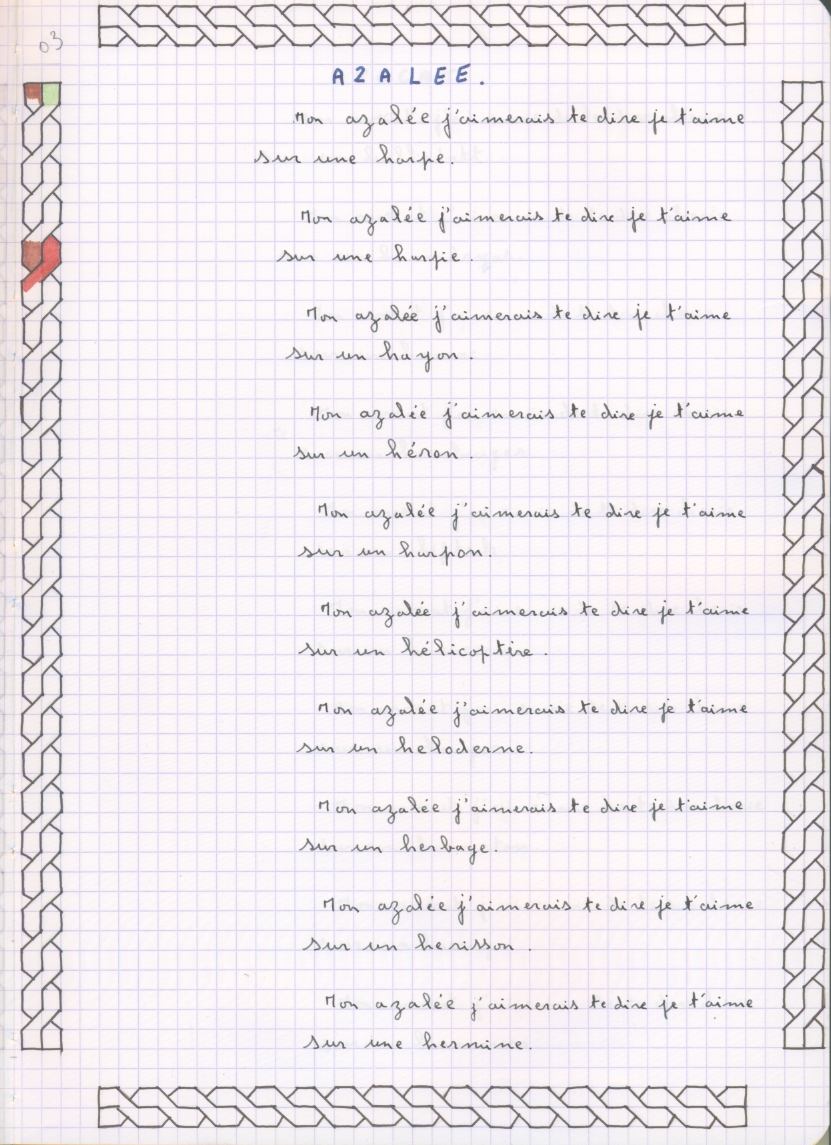 03
AZALEE.
Mon azalée j'aimerais te dire je t'aime
sur une harpe.
Mon azalée j'aimerais te dire je t'aime
sur une harpie.
Mon azalée j'aimerais te dire je t'aime
sur un hayon.
Mon azalée j'aimerais te dire je t'aime
sur un héron.
Mon azalée j'aimerais te dire je t'aime
sur un harpon.
Mon azalée j'aimerais te dire je t'aime
sur un hélicoptère.
Mon azalée j'aimerais te dire je t'aime
sur un heloderne.
Mon azalée j'aimerais te dire je t'aime
sur un herbage.
Mon azalée j'aimerais te dire je t'aime
sur un herisson.
Mon azalée j'aimerais te dire je t'aime
sur une hermine.